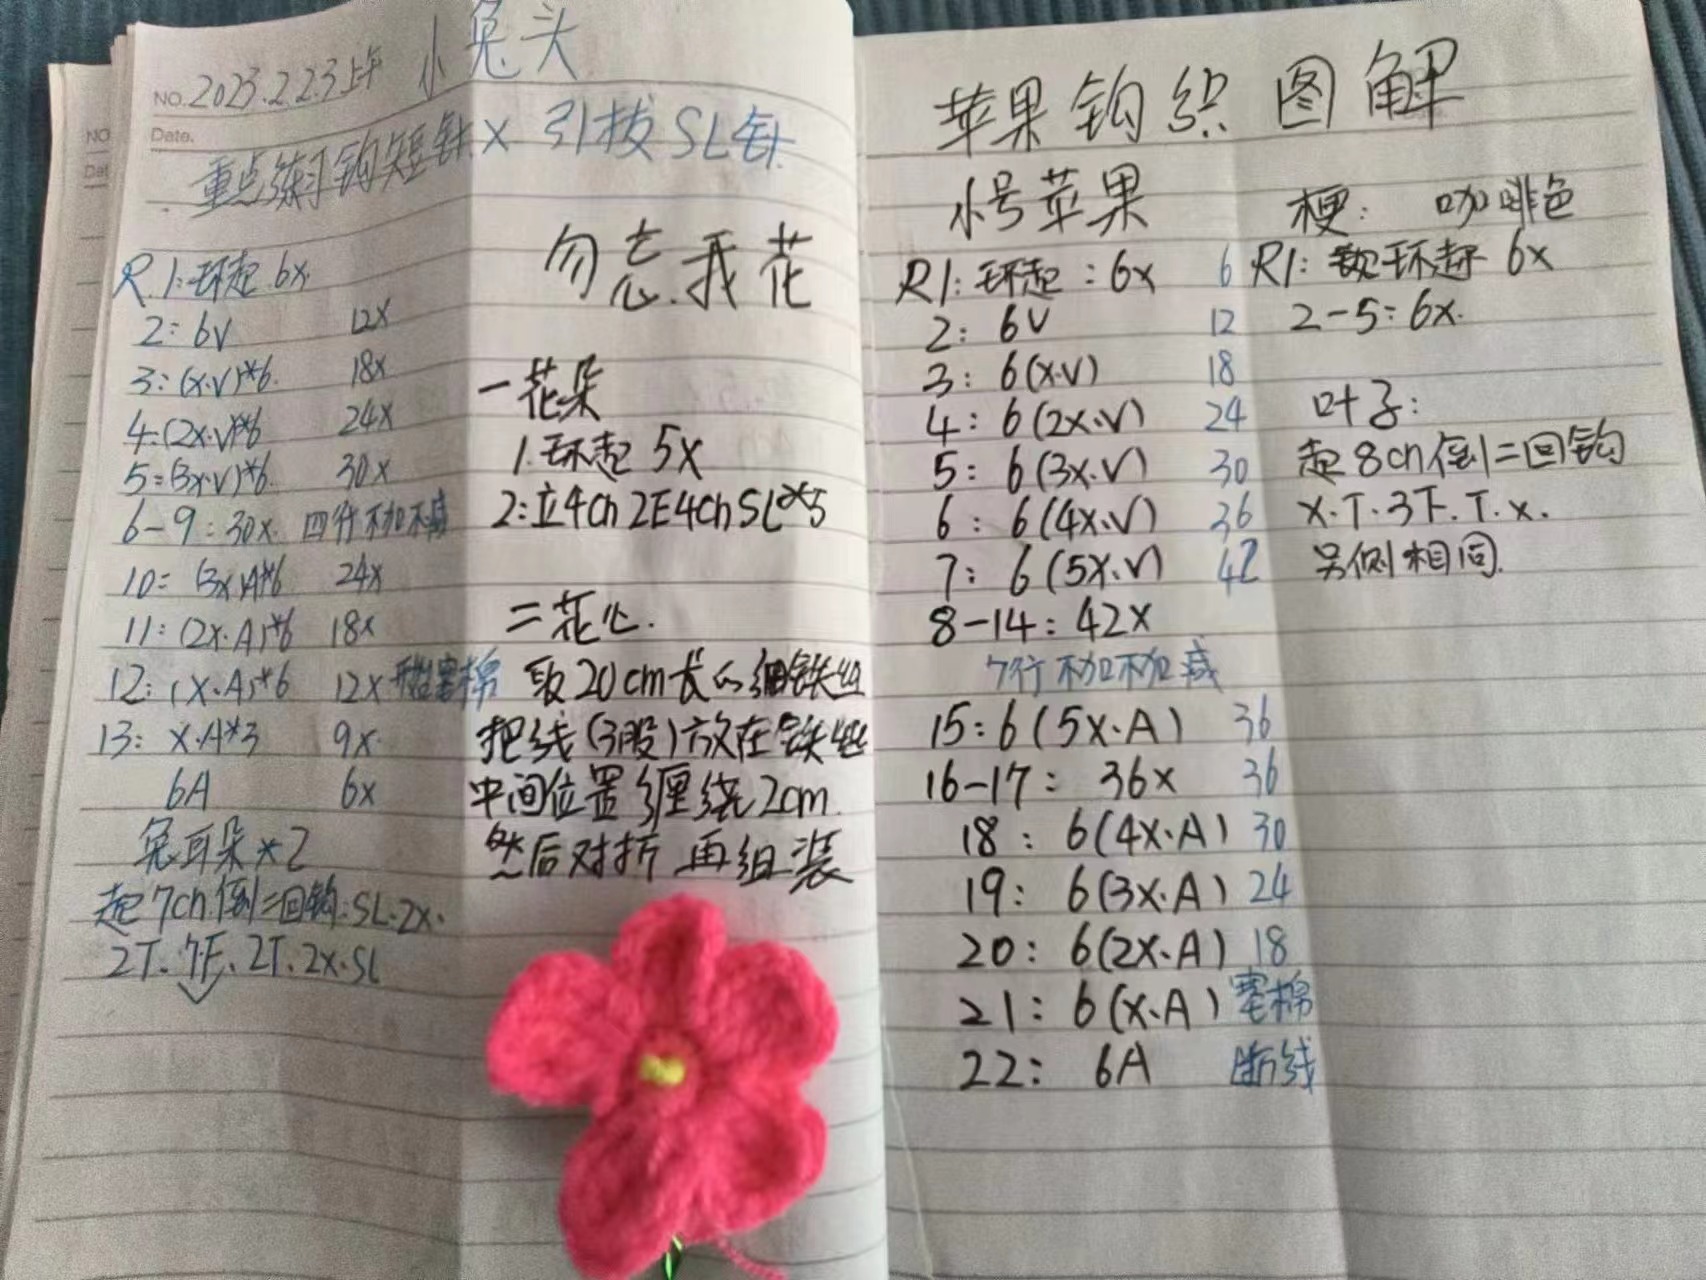 小兔头
NO. 2023.2.23上午
Date.
重点练习钩短针X 引拔SL针
R 1:环起 6x
2: 6V 12x
3: (x.V)*6 18x
4:(2x.V)*6 24x
5:(3x.V)*6 30x
6-9:30x. 四行不加不减
10: (3x.A)*6 24x
11: (2x.A)*6 18x
12: (x.A)*6 12x 开始塞棉
13: x.A*3 9x
6A 6x
兔耳朵*2
起7ch倒二回钩.SL.2x.
2T.7F.2T.2x.SL
勿忘我花
一花朵
1.环起 5X
2:立4ch 2E4chSL*5
二花心.
取20cm长的细铁丝
把线(3股)放在铁丝
中间位置缠绕2cm.
然后对折 再组装
苹果钩织图解
小号苹果
R1:环起:6x 6
2: 6V 12
3: 6(x.V) 18
4: 6(2x.V) 24
5: 6(3x.V) 30
6: 6(4x.V) 36
7: 6(5x.V) 42
8-14: 42x
7行不加不加减
15: 6(5x.A) 36
16-17: 36x 36
18: 6(4x.A) 30
19: 6(3x.A) 24
20: 6(2x.A) 18
21: 6(x.A) 塞棉
22: 6A 断线
梗: 咖啡色
R1: 环起 6x
2-5: 6x.
叶子:
起8ch倒二回钩
x.T.3F.T.x.
另侧相同.